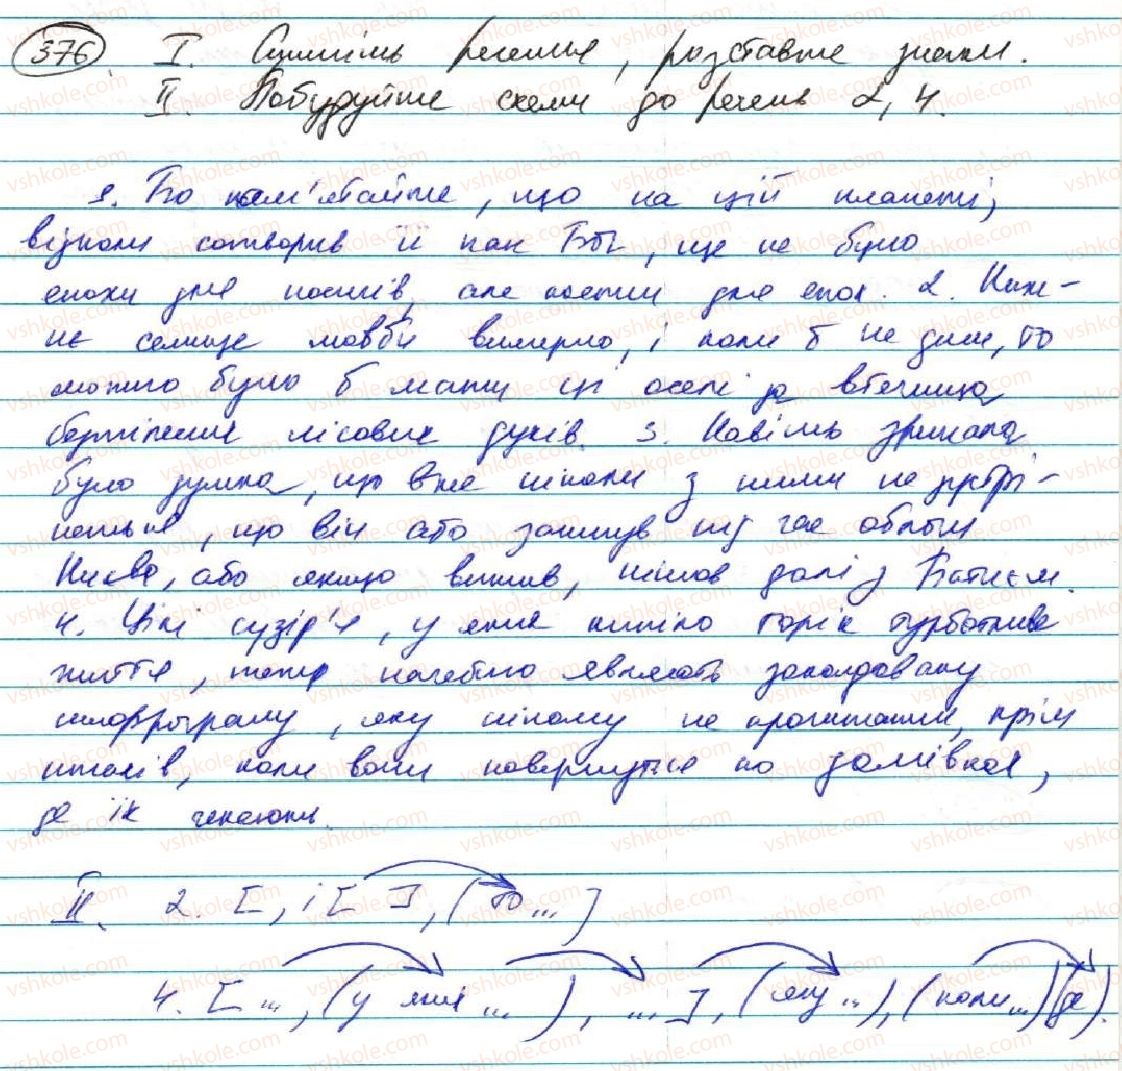 376
I. Спишіть речення, розставте знаки.
II. Побудуйте схеми до речень 2, 4.
1. Бо пам'ятайте, що на цій планеті,
відколи сотворив її пан Бог, ще не було
епохи для поетів, але поети для епох. 2. Каж-
не селище мовби вимерло, і коли б не дим, то
можна було б мати ці оселі за
лісових духів. 3. Навіть
була думка, що вже ніколи з ними не зустрі-
неться, що він або загинув під час облоги
Києва, або якщо вижив, пішов далі з Батиєм.
4. Цілі сузір'я, у яких кипіло торік турботливе
життя, тепер начебто являють заколдовану
шифрограму, яку нікому не прочитати, крім
птахів, коли вони повернуться на домівках,
де їх чекають.
II. 2. [, і [ ], (то...]
4. [ ..., (у яких ... ), ... ], (яку ...), (коли ...)(де).